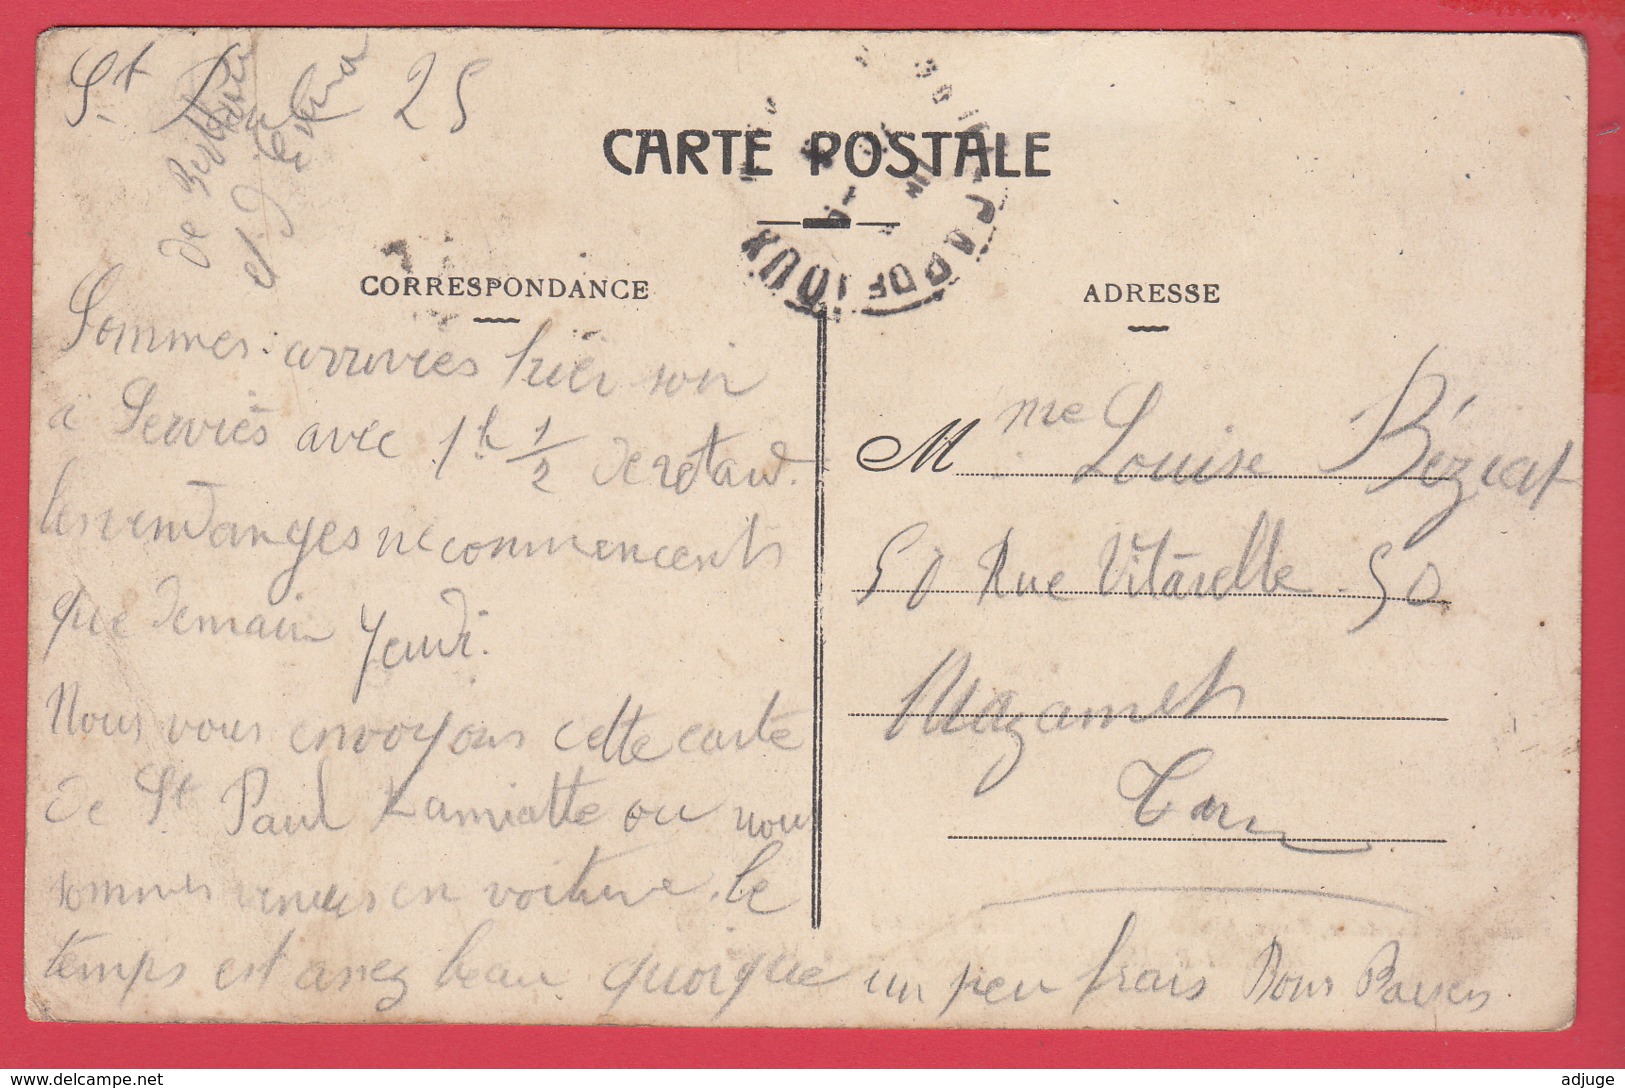 St 25
CARTE POSTALE
CORRESPONDANCE
ADRESSE
Sommes arrivés hier soir
à Serviès avec 1h 1/2 de retard.
les vendanges ne commencent
que demain Jeudi.
Nous vous envoyons cette carte
de St Paul Lamiatte ou nous
sommes venus en voiture. le
temps est assez beau quoique un peu frais Bons Baisers.
Mme Louise Béziat
50 Rue Vitarelle 50
Mazamet
Tarn
delcampe.net
adjuge